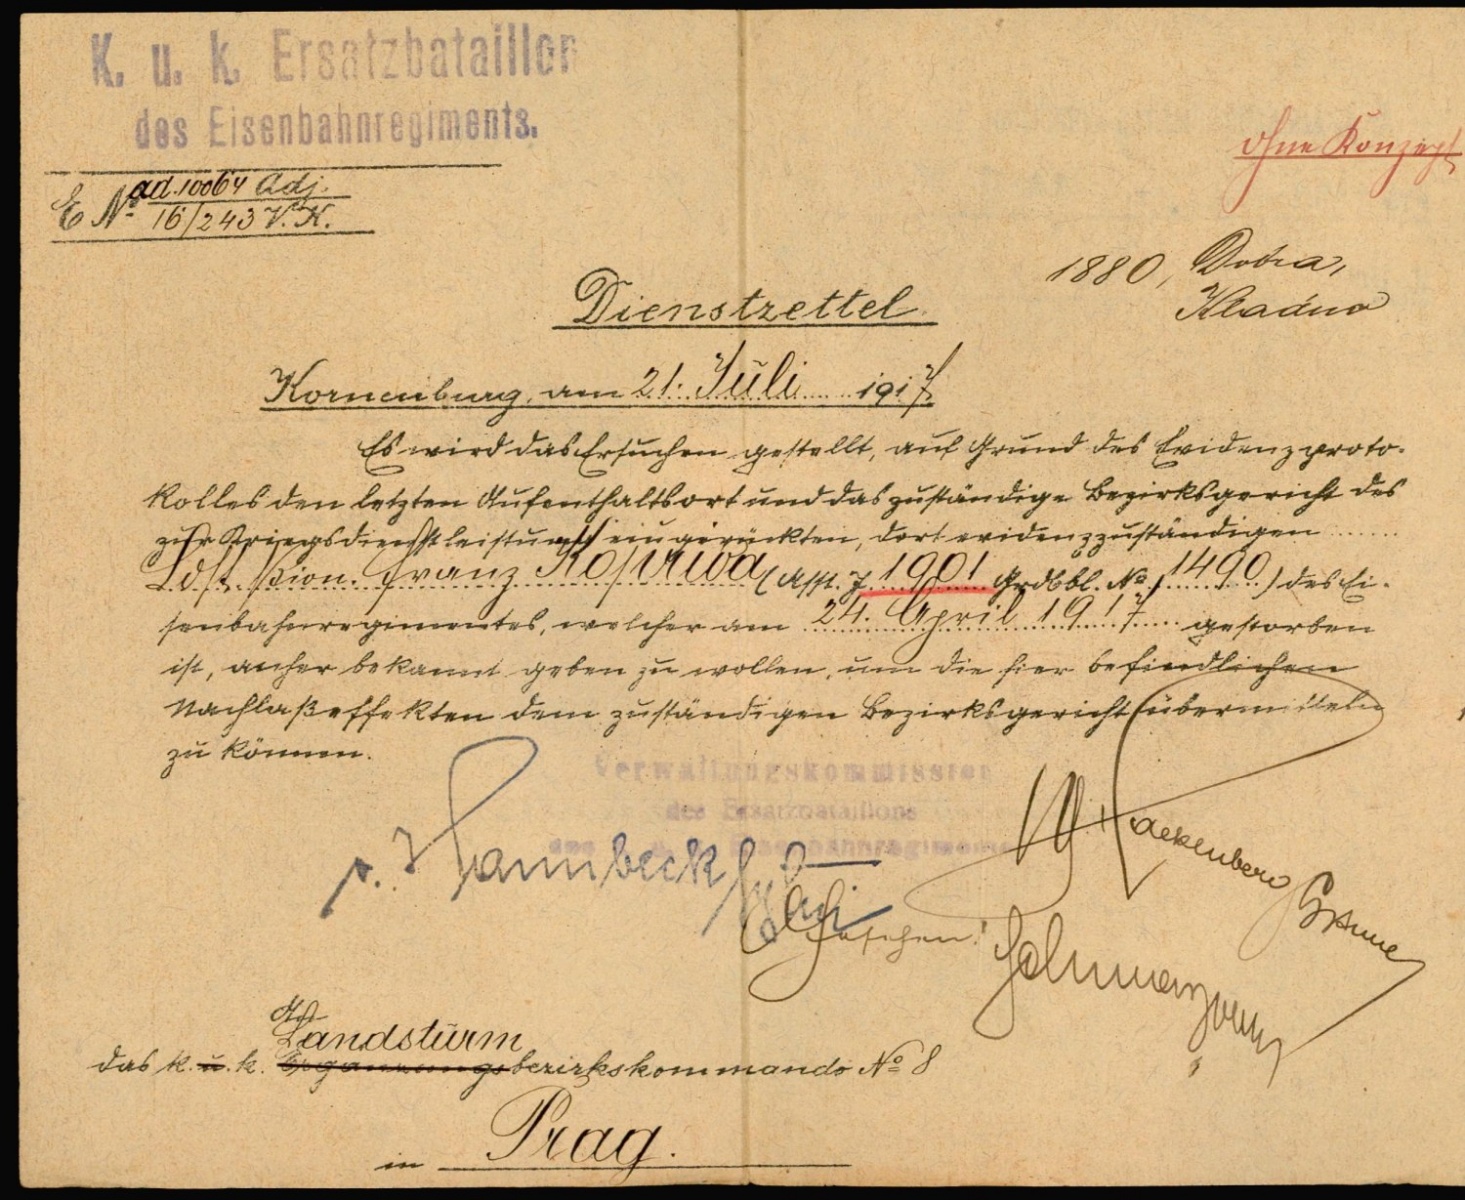 K. u. k. Ersatzbataillon
des Eisenbahnregiments.
ohne Konzept
E No ad. 10064 Adj.
16/243 V. K.
1880, Dobra,
Kladno
Dienstzettel
Korneuburg, am 21. Juli 1917
Es wird das Ersuchen gestellt, auf Grund des Evidenzproto-
kolles den letzten Aufenthaltsort und das zuständige Bezirksgericht des
zur Kriegsdienstleistung eingerückten, dort evidenzzuständigen
Ldst. Pion. Franz Kopriva (Asst. J. 1901 Grdbbl. No 1490) des Ei-
senbahnregimentes, welcher am 24. April 1917 gestorben
ist, anher bekannt geben zu wollen, um die hier befindlichen
Nachlaßeffekten dem zuständigen Bezirksgericht übermitteln
zu können.
Verwaltungskommission
des Ersatzbataillons
Eisenbahnregiments
Gesehen!
An
Landsturm
das k. u. k. Ergänzungsbezirkskommando No 8
in Prag.